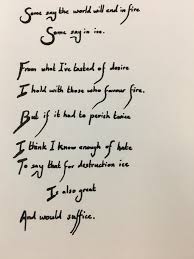 Some say the world will end in fire
Some say in ice.
From what I've tasted of desire
I hold with those who favour fire.
But if it had to perish twice
I think I know enough of hate
To say that for destruction ice
Is also great
And would suffice.